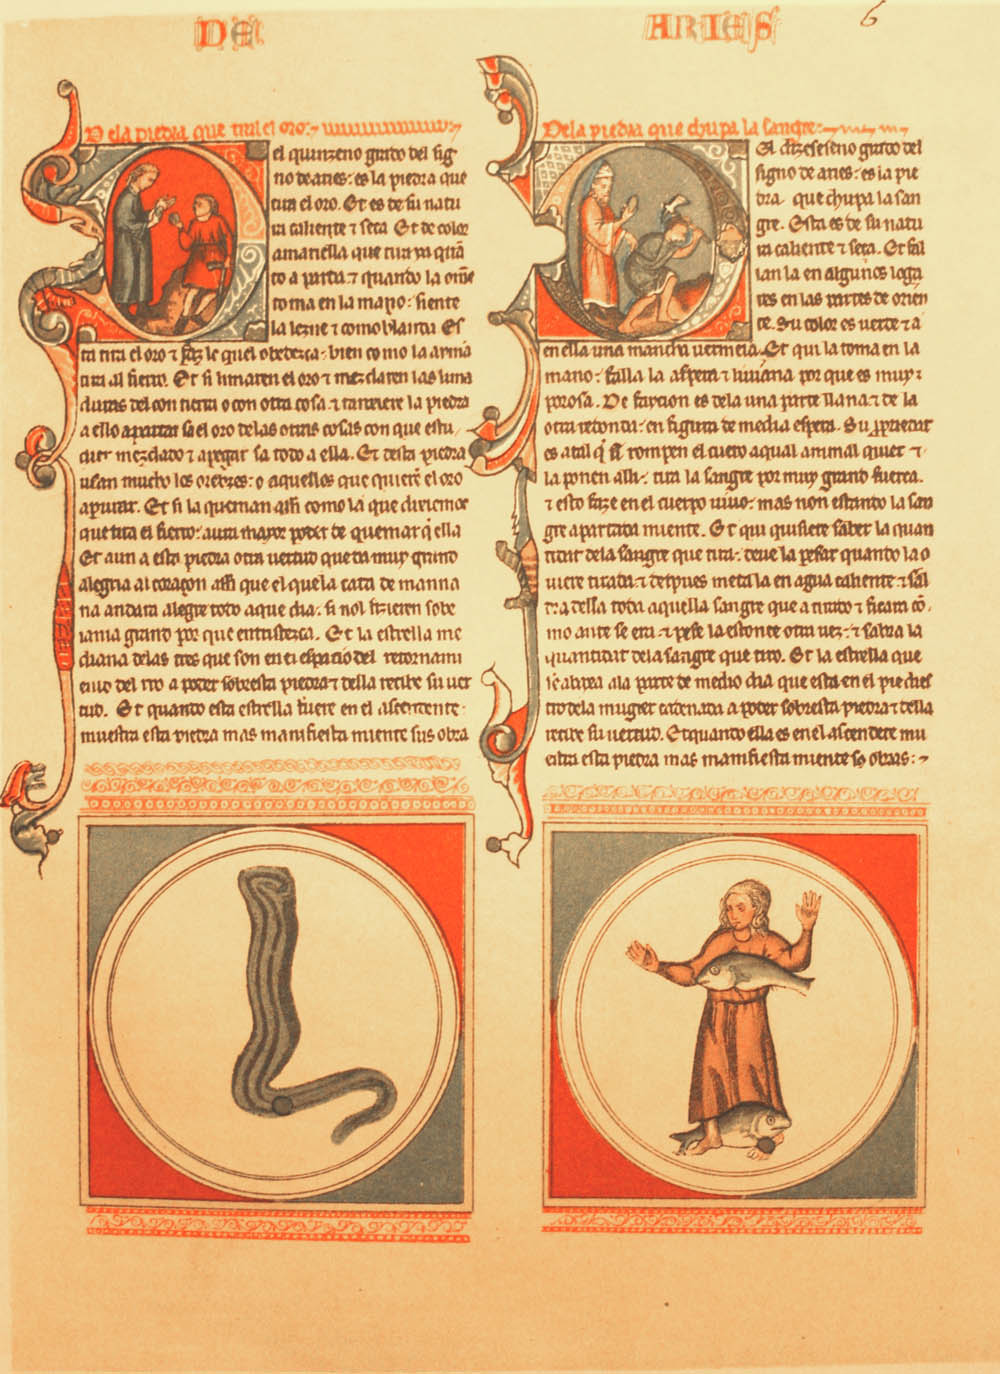 DE
ARIES
6
De la piedra que tira el oro:
el quinzeno grado del sig
no de aries: es la piedra que
tira el oro. Et es de su natu
ra caliente ⁊ seca. Et de color
amariella que tira ya quā
to a parda: ⁊ quando la om̄e
toma en la mano: siente
la lezne ⁊ como blanda. Es
ta tira el oro ⁊ faz le quel obedezca: bien como la ayma
tira al fierro. Et si limaren el oro ⁊ mezclaren las lima
duras del con tierra o con otra cosa ⁊ tanxiere la piedra
a ello apartar sa el oro delas otras cosas con que estu
dier mezclado ⁊ apegar sa todo a ella. Et desta piedra
usan mucho los orebzes: o aquellos que quierē el oro
apurar. Et si la queman assi como la que dixiemos
que tira el fierro: aura mayor poder de quemar q̄ ella
Et aun a esta piedra otra uertud que da muy grand
alegria al coraçon assi que el que la cata de manna
na andara alegre todo aque dia: si nol fizieren sobe
iania grand por que entristezca. Et la estrella me
diana delas tres que son en el espacio del retornami
ento del rio a poder sobresta piedra ⁊ della recibe su uer
tud. Et quando esta estrella fuere en el ascendente:
muestra esta piedra mas manifiesta miente sus obras
De la piedra que chupa la sangre:
El dizeseseno grado del
signo de aries: es la pie
dra que chupa la san
gre. Esta es de su natu
ra caliente ⁊ seca. Et fal
lan la en algunos loga
res en las partes de orien
te. Su color es uerde ⁊ a
en ella una mancha uermeia. Et qui la toma en la
mano: falla la aspera ⁊ liuiana por que es muy
porosa. De faycion es dela una parte llana ⁊ de la
otra redonda: en figura de media espera. Su propiedat
es atal q̄ si rompen el cuero a qual animal quier ⁊
la ponen alli: tira la sangre por muy grand fuerça.
⁊ esto faze en el cuerpo uiuo: mas non estando la san
gre apartada miente. Et qui quisiere saber la quan
tidat dela sangre que tira: deue la pesar quando la o
uiere tirada ⁊ despues meta la en agua caliente ⁊ sal
dra della toda aquella sangre que a tirado ⁊ fincara cō
mo ante se era ⁊ pese la estonce otra uez: ⁊ sabra la
quantidat dela sangre que tiro. Et la estrella que
se abrea ala parte de medio dia que esta en el pie dies
tro dela mugier cadenada a poder sobresta piedra ⁊ della
recibe su uertud. Et quando ella es en el ascendente mu
estra esta piedra mas manifiesta miente sus obras: